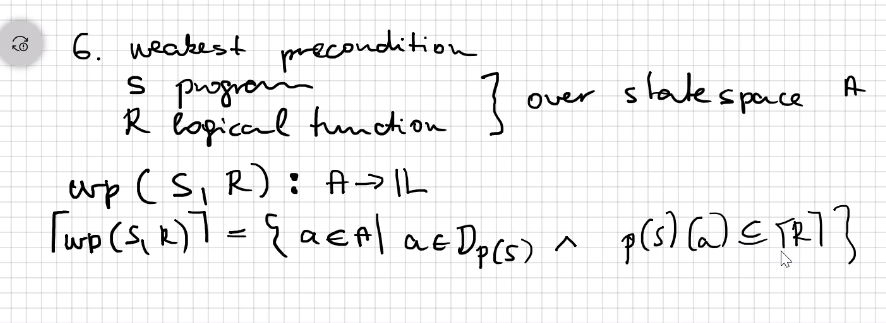 6. weakest precondition
S program
R logical function } over statespace A
wp(S, R) : A → 𝕃
⌈wp(S, R)⌉ = { a ∈ A | a ∈ D_p(S) ∧ p(S)(a) ⊆ ⌈R⌉ }